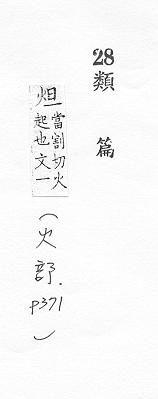 28
類篇
炟當割切火
起也文一
(火部.
P371)